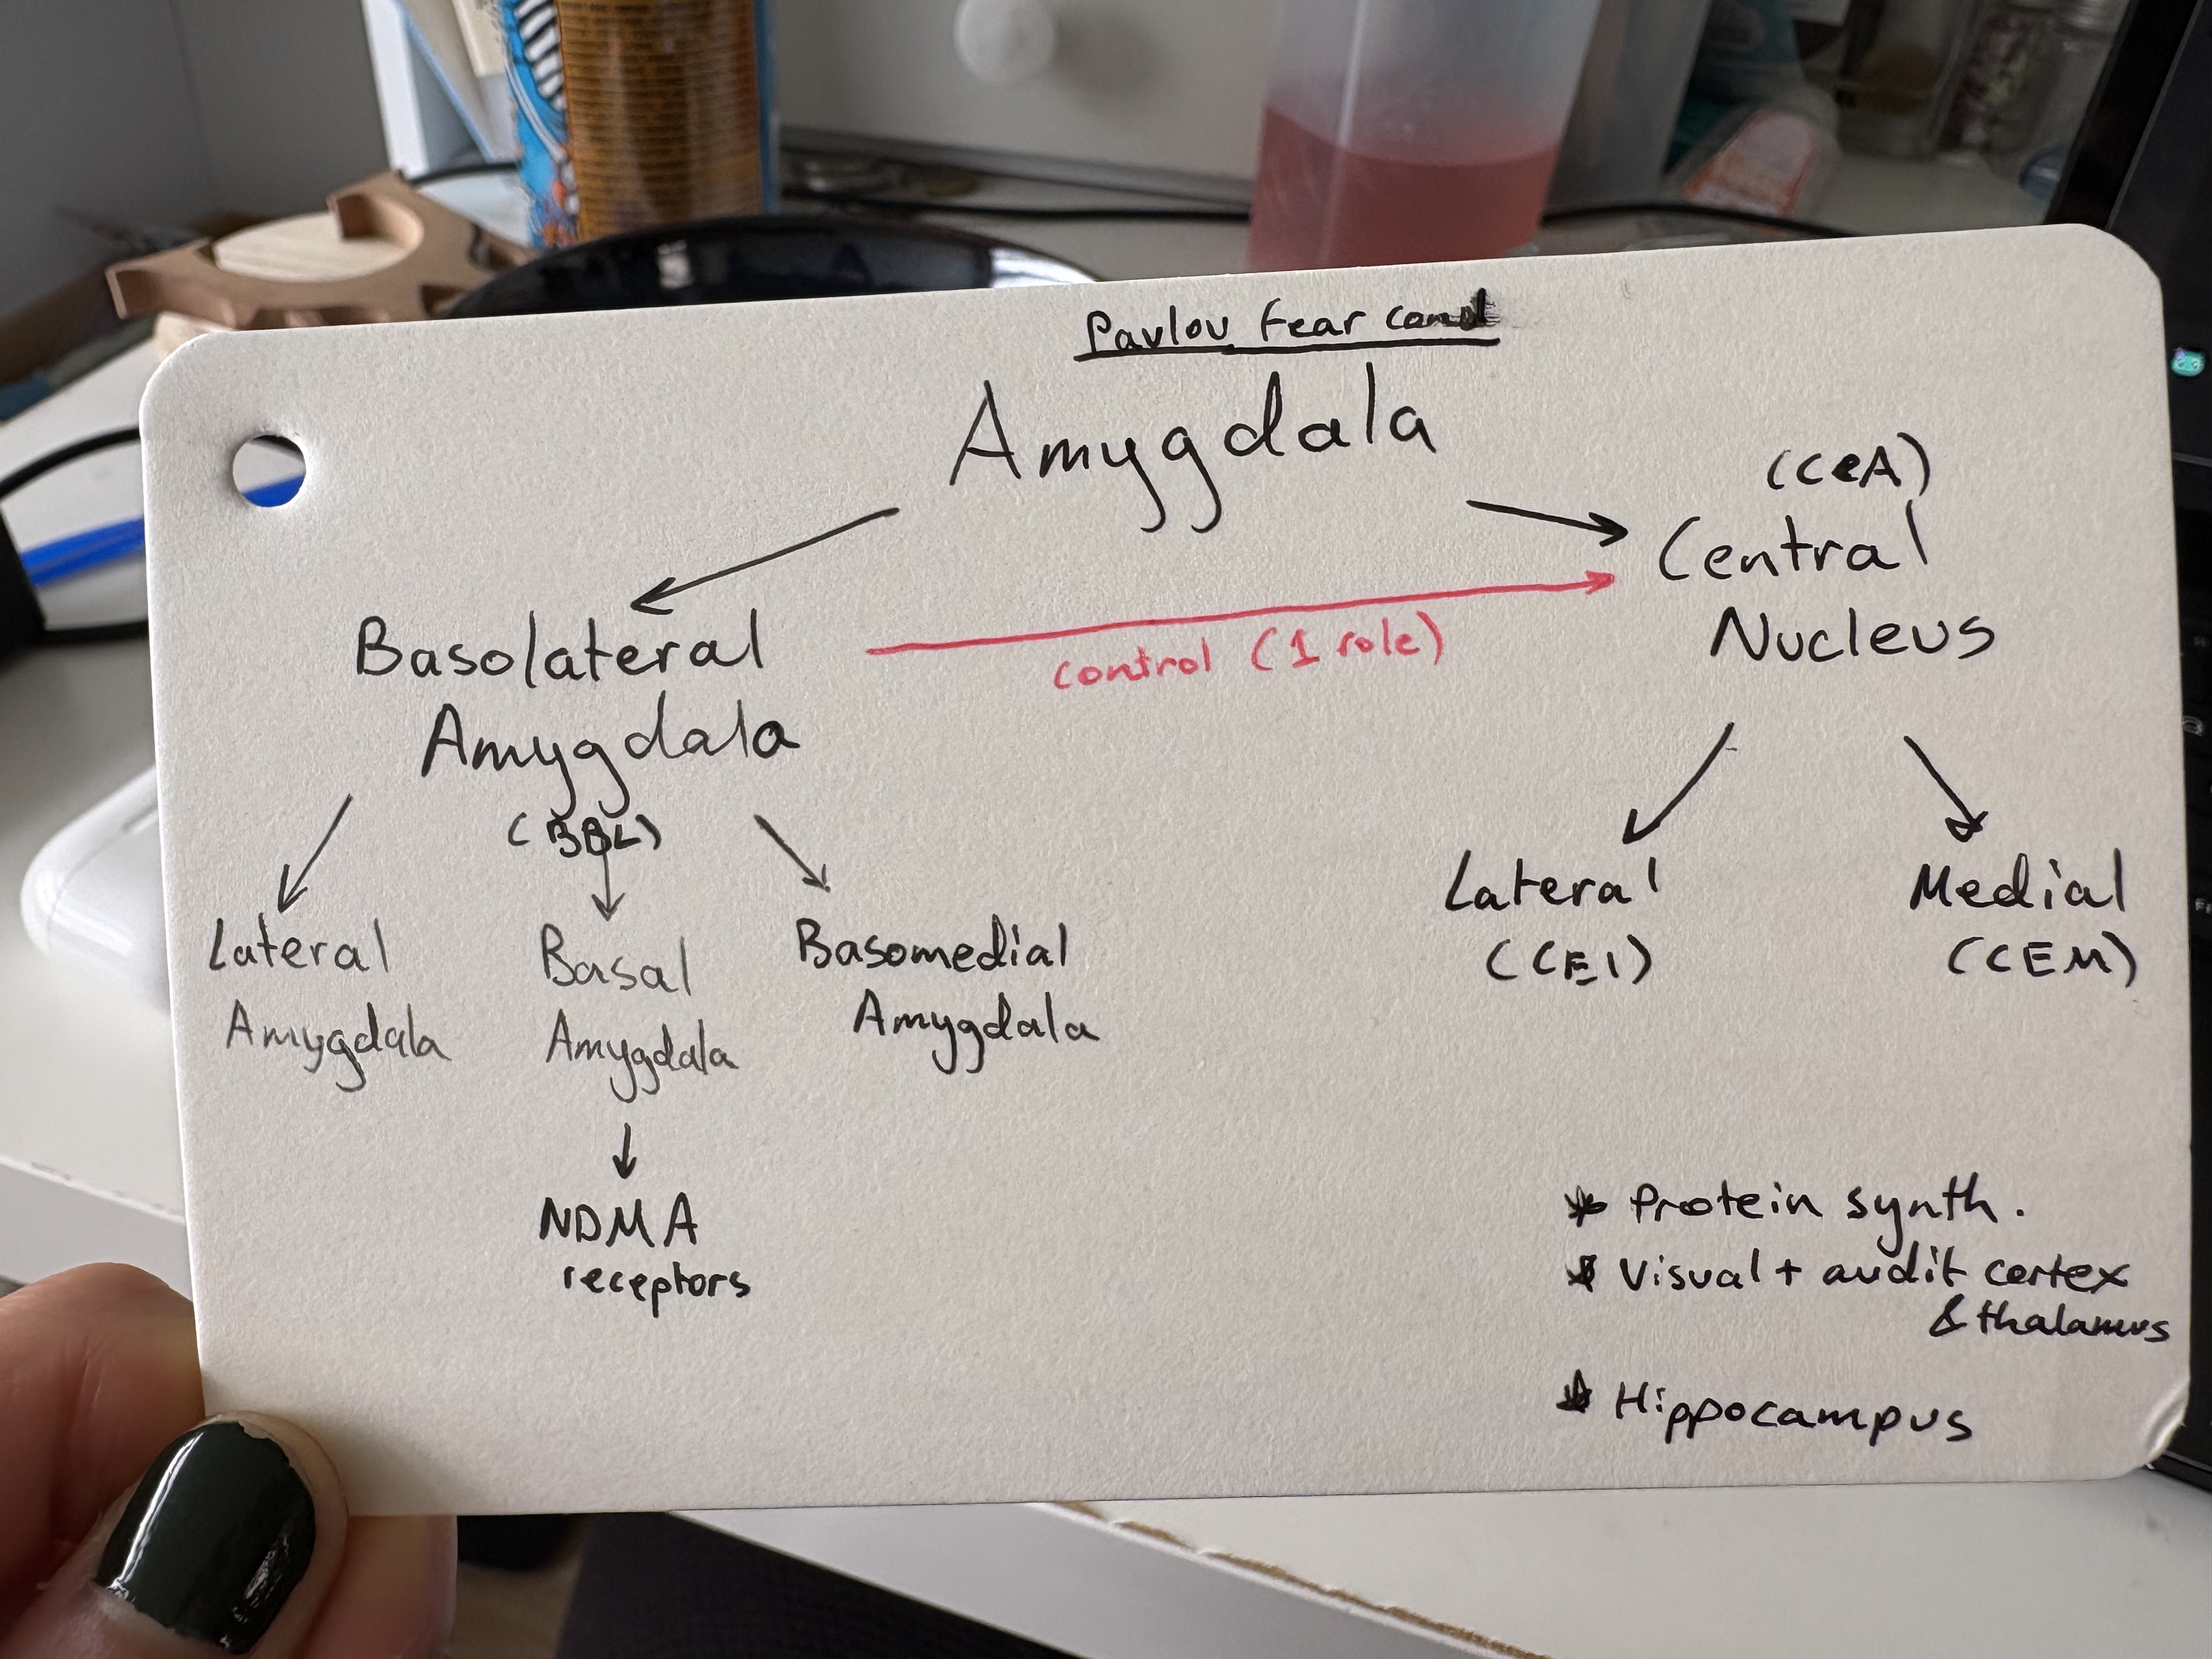 Pavlov fear cond
Amygdala
(CeA)
Central
Nucleus
control (1 role)
Basolateral
Amygdala
(BBL)
Lateral
Amygdala
Basal
Amygdala
Basomedial
Amygdala
NDMA
receptors
Lateral
(CEl)
Medial
(CEM)
* Protein synth.
* Visual + audit cortex
& thalamus
* Hippocampus